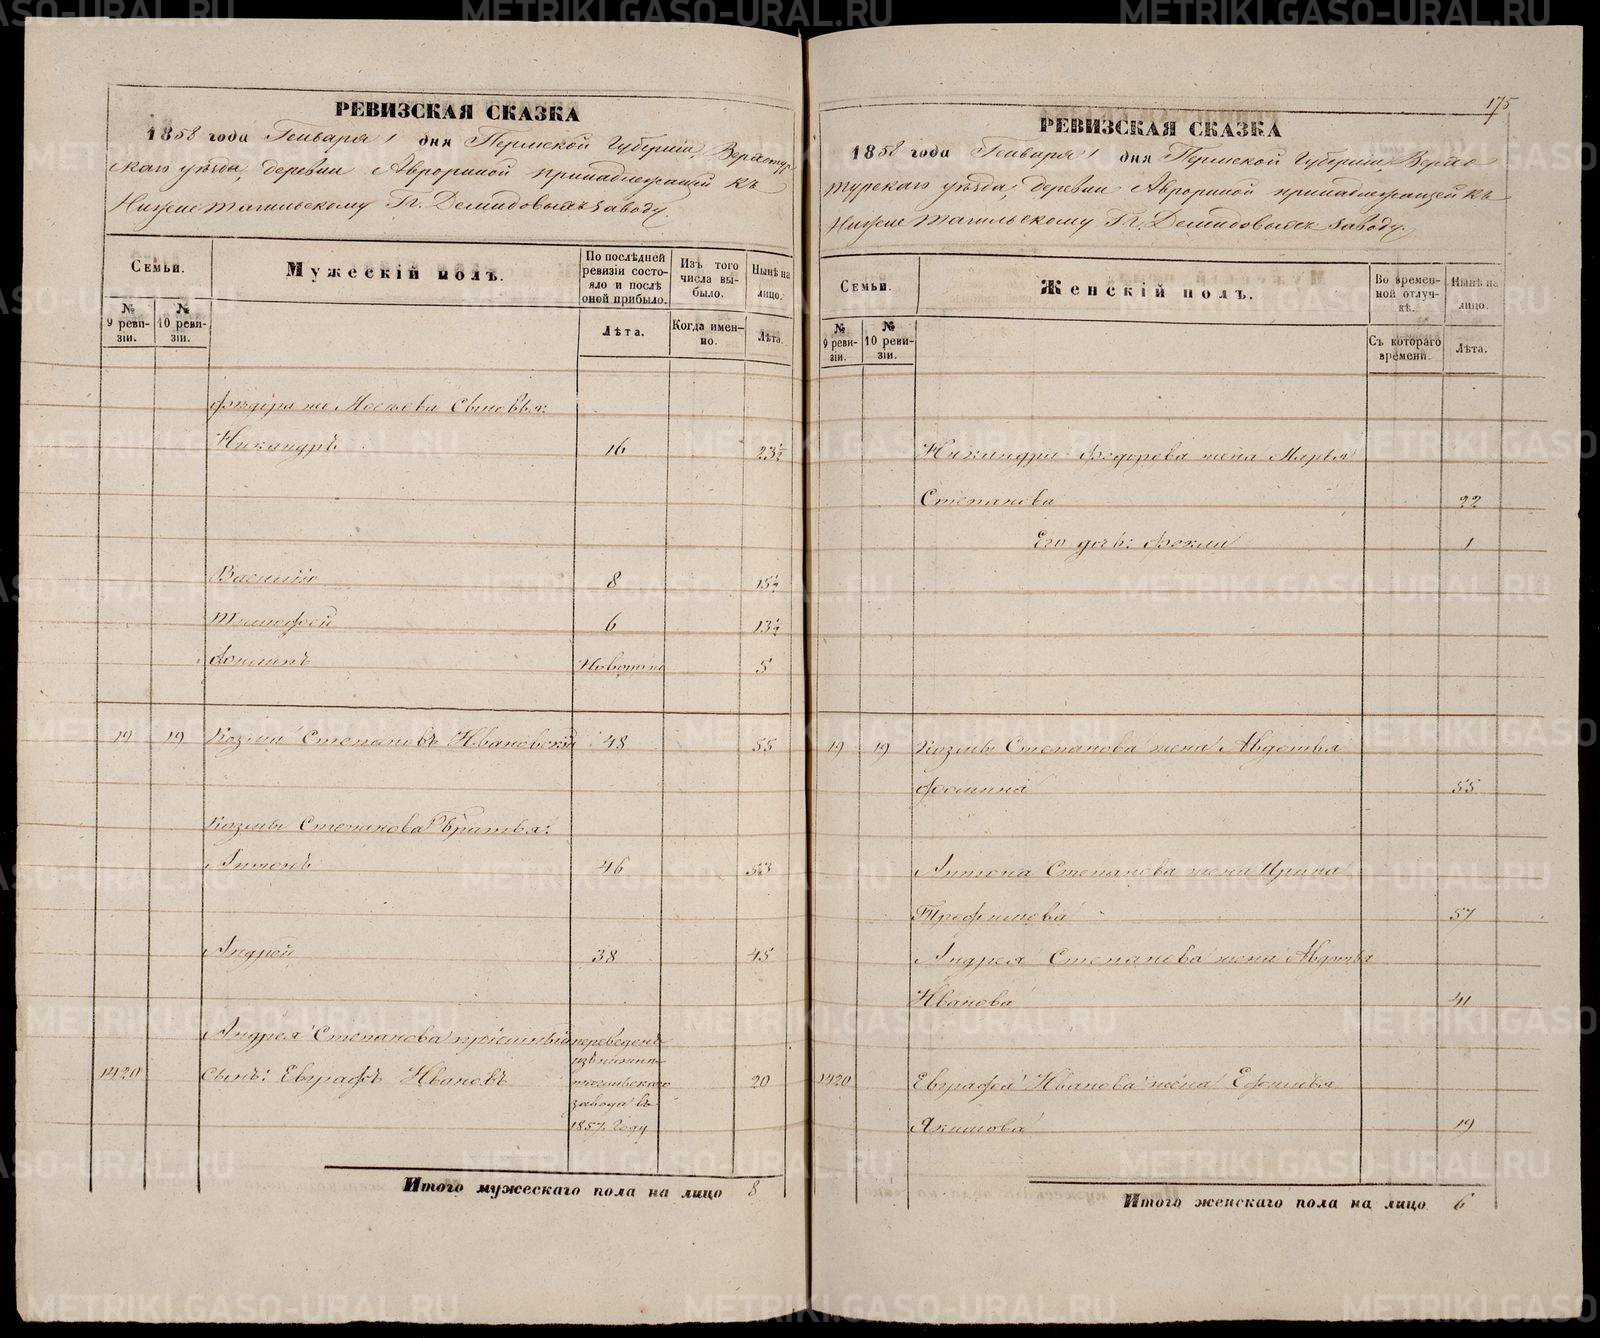 РЕВИЗСКАЯ СКАЗКА
1858 года Генваря 1 дня Пермской Губернiи, Верхотур-
скаго уѣзда, деревни Аврориной принадлежащей къ
Нижнетагильскому Гг. Демидовыхъ заводу.
Семьи.
Мужескiй полъ.
По послѣдней ревизiи состояло и послѣ оной прибыло.
Изъ того числа выбыло.
Нынѣ на лицо.
№ 9 ревизiи.
№ 10 ревизiи.
Лѣта.
Когда именно.
Лѣта.
Федора же Мосѣева Сыновья:
Никандръ 16 23½
Василiй 8 15½
Тимофей 6 13½
новорож 5
19 19 Козма Степановъ Ивановскiй 48 55
Козмы Степанова братья:
Антонъ 46 53
Андрей 38 45
Андрея Степанова прiемный переведенъ
изъ нижне-
1420 сынъ: Евграфъ Ивановъ тагильскаго 20
завода въ
1857 году
Итого мужескаго пола на лицо 8
175
РЕВИЗСКАЯ СКАЗКА
1858 года Генваря 1 дня Пермской Губернiи, Верхо-
турскаго уѣзда, деревни Аврориной принадлежащей къ
Нижнетагильскому Гг. Демидовыхъ заводу.
Семьи.
Женскiй полъ.
Во временной отлучкѣ.
Нынѣ на лицо.
№ 9 ревизiи.
№ 10 ревизiи.
Съ котораго времени.
Лѣта.
Никандра Федорова жена Марья
Степанова 22
Его дочь: Фекла 1
19 19 Козмы Степанова жена Авдотья
Фомина 55
Антона Степанова жена Ирина
Трофимова 57
Андрея Степанова жена Авдотья
Иванова 41
1420 Евграфа Иванова жена Ефимья
Якимова 19
Итого женскаго пола на лицо 6
METRIKI.GASO-URAL.RU